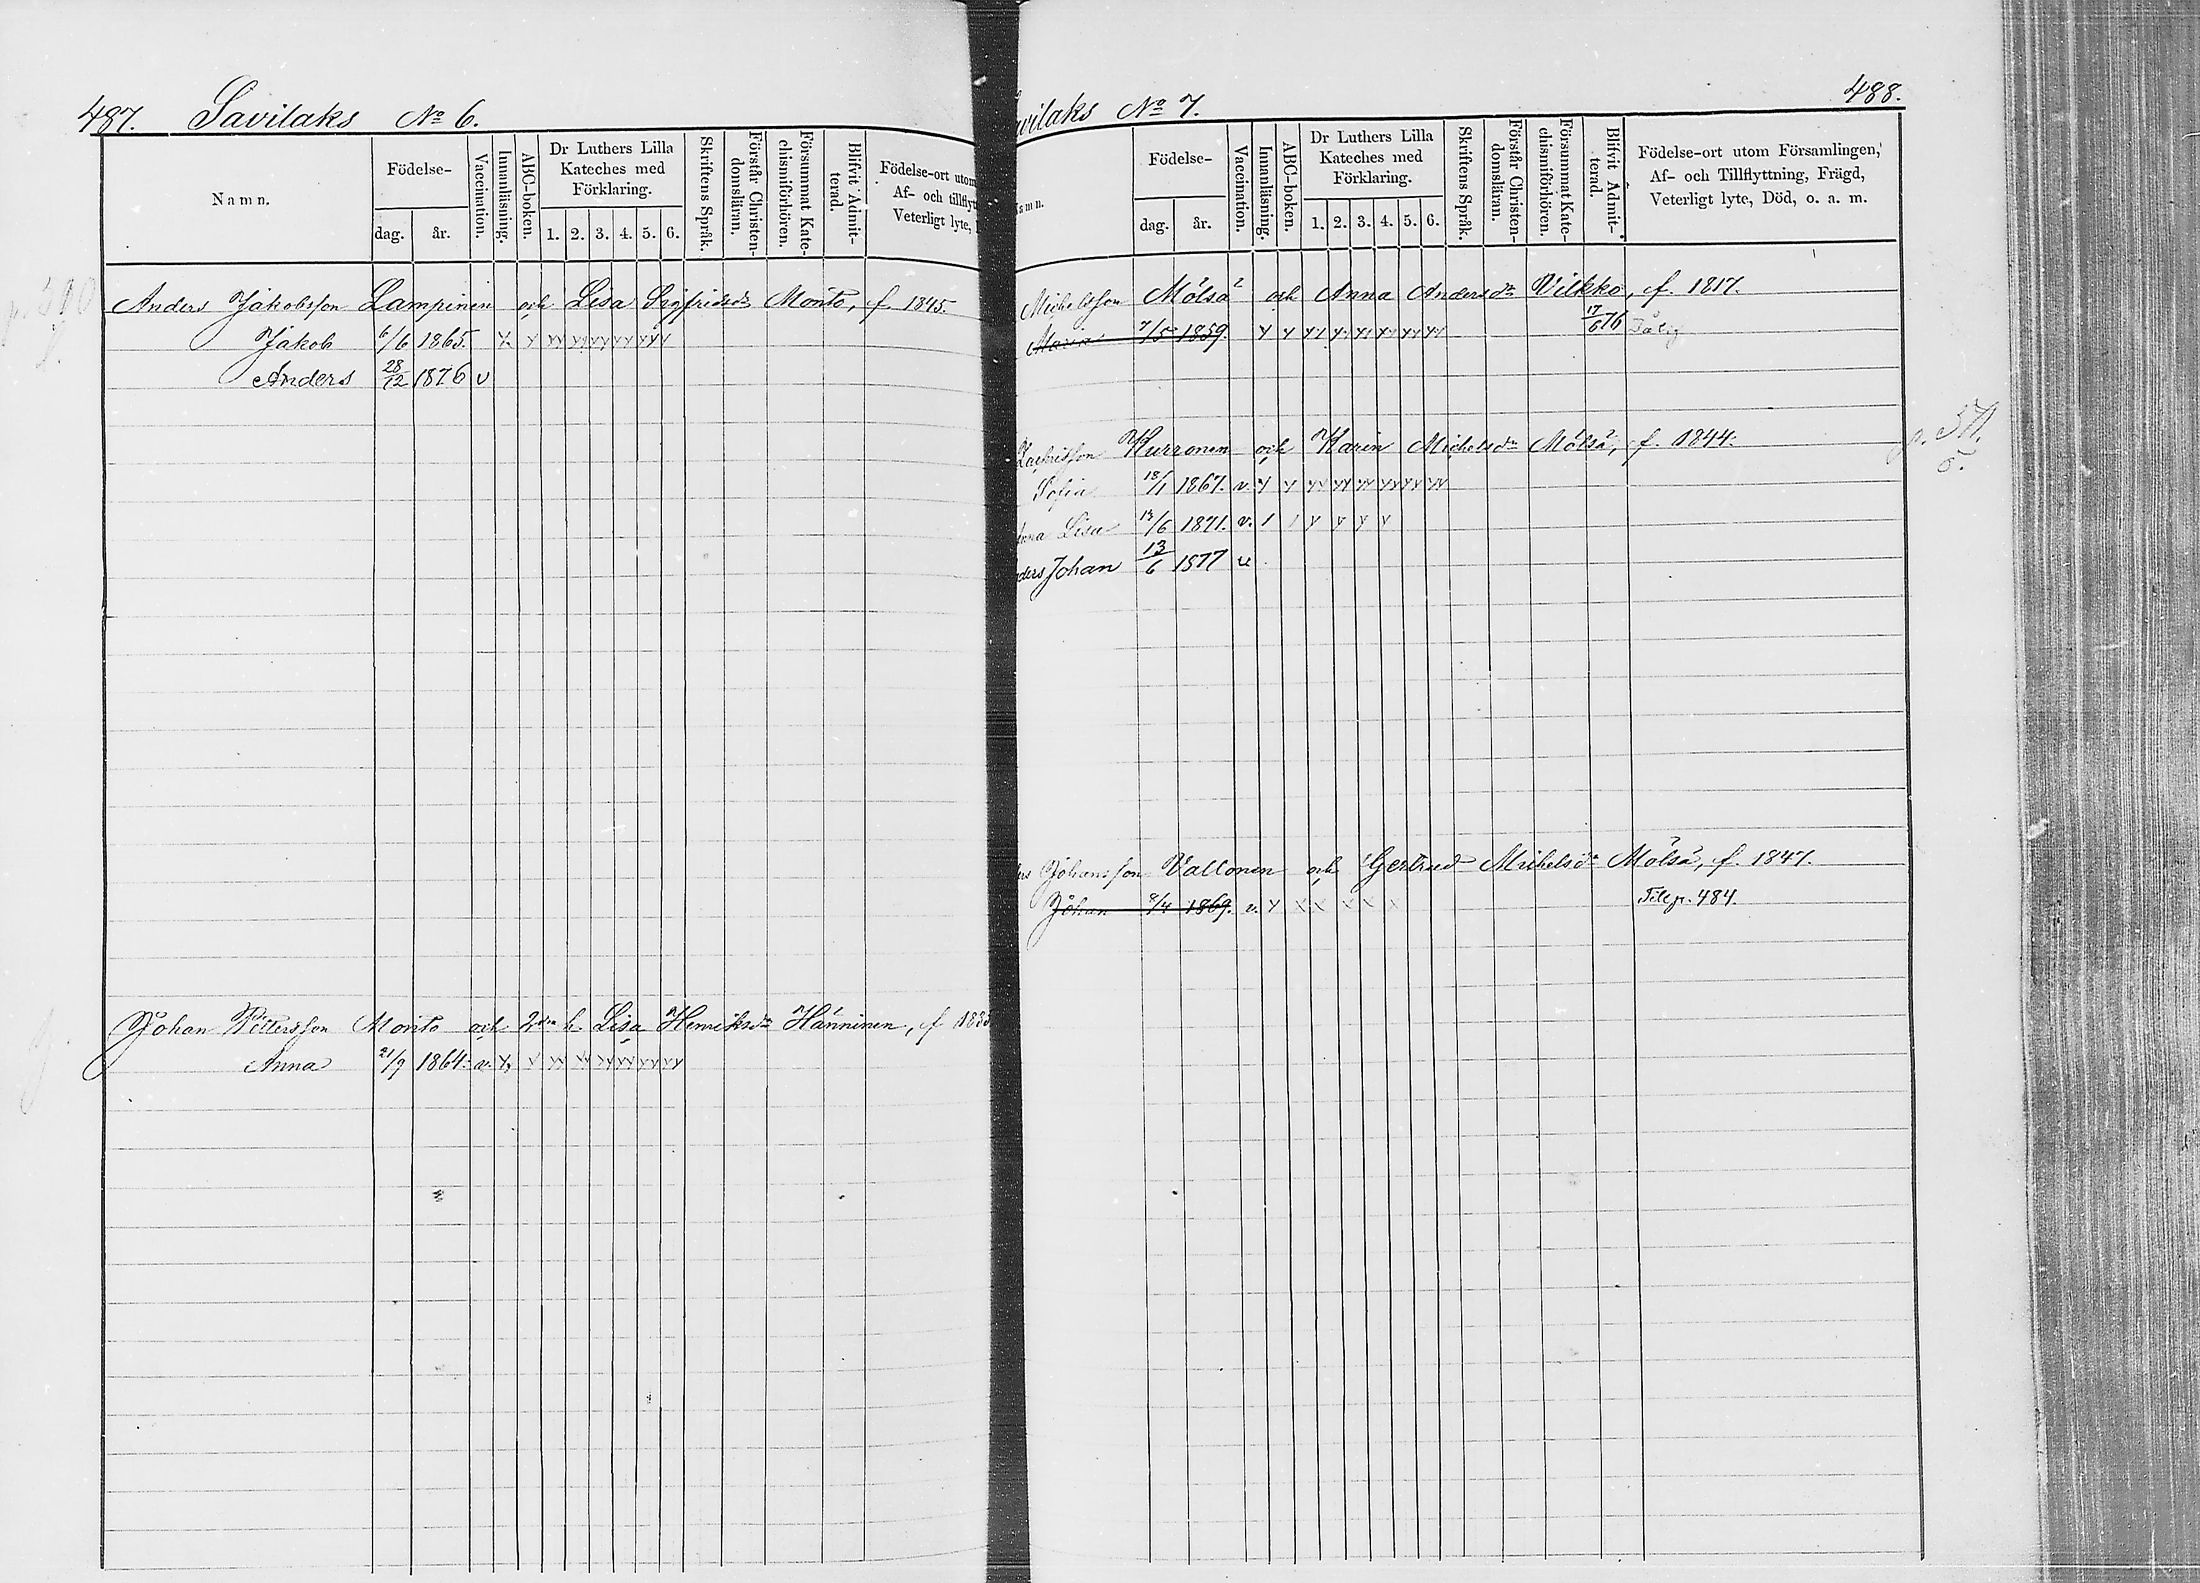 487. Savilaks No 6.
Namn.
Födelse-
dag. år.
Vaccination.
Innanläsning.
ABC-boken.
Dr Luthers Lilla
Kateches med
Förklaring.
1. 2. 3. 4. 5. 6.
Skriftens Språk.
Förstår Christen-
domsläran.
Försummat Kate-
chismiförhören.
Blifvit Admit-
terad.
Födelse-ort utom
Af- och tillflyt
Veterligt lyte,
Anders Jakobsson Lampinen och Lisa Sigfridsdr Monto, f. 1845.
Jakob 6/6 1865.
Anders 28/12 1876 v
Johan Pettersson Monto och 2dra h. Lisa Henriksdr Hänninen, f 1835
Anna 21/9 1864. v.
vilaks No 7. 488.
amn.
Födelse-
dag. år.
Vaccination.
Innanläsning.
ABC-boken.
Dr Luthers Lilla
Kateches med
Förklaring.
1. 2. 3. 4. 5. 6.
Skriftens Språk.
Förstår Christen-
domsläran.
Försummat Kate-
chismiförhören.
Blifvit Admit-
terad.
Födelse-ort utom Församlingen,
Af- och Tillflyttning, Frägd,
Veterligt lyte, Död, o. a. m.
Michelsson Mölsä och Anna Andersdr Vilkko, f. 1817.
Maria 7/5 1859. 17/6 76
Zachrisson Kurronen och Karin Michelsdr Mölsä, f. 1844.
Sofia 18/1 1867. v.
Anna Lisa 13/6 1871. v.
ders Johan 13/6 1877 v
Johansson Vallonen och Gertrud Michelsdr Mölsä, f. 1847.
Johan 8/4 1869. v. Till p. 484.